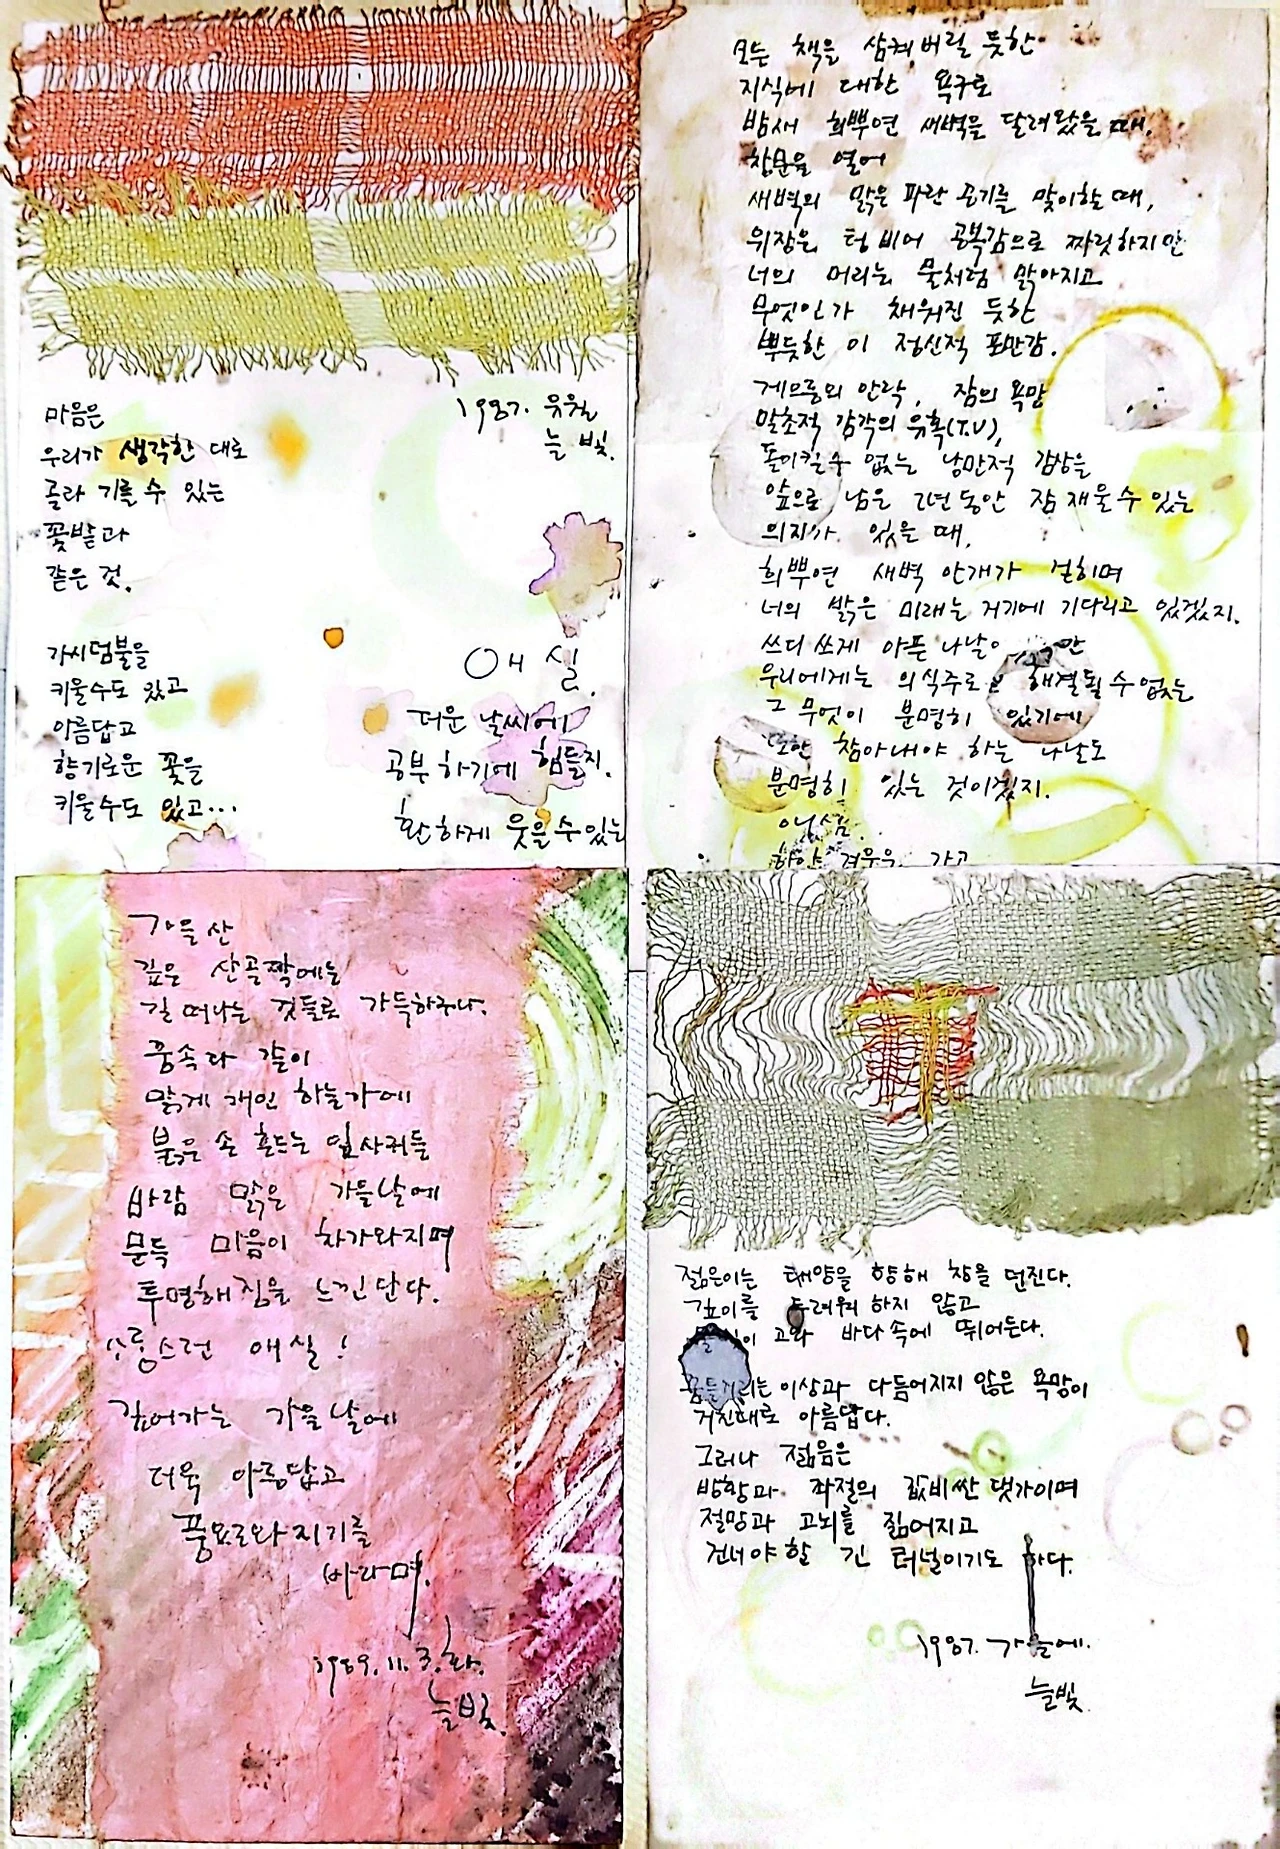 마음은
우리가 생각한 대로
골라 기를 수 있는
꽃밭과
같은 것.
가시덤불을
키울수도 있고
아름답고
향기로운 꽃을
키울수도 있고...
1987. 유월
늘 빛.
애 실.
더운 날씨에
공부 하기에 힘들지.
환하게 웃을 수 있는
모든 책을 삼켜버릴 듯한
지식에 대한 욕구로
밤새 희뿌연 새벽을 달려왔을 때,
창문을 열어
새벽의 맑은 파란 공기를 맞이할 때,
위장은 텅 비어 공복감으로 짜릿하지만
너의 머리는 물처럼 맑아지고
무엇인가 채워진 듯한
뿌듯한 이 정신적 포만감.
게으름의 안락, 잠의 욕망
말초적 감각의 유혹(T.V),
돌이킬 수 없는 낭만적 감상을
앞으로 남은 2년 동안 잠 재울 수 있는
의지가 있을 때,
희뿌연 새벽 안개가 걷히며
너의 밝은 미래는 거기에 기다리고 있겠지.
쓰디 쓰게 아픈 나날
우리에게는 의식주로 해결될 수 없는
그 무엇이 분명히 있기에
또한 참아내야 하는 나날도
분명히 있는 것이겠지.
애실.
하얀 겨울은 가고
가을 산
깊은 산골짝에는
길 떠나는 것들로 가득하구나.
품속다 갈이
맑게 개인 하늘가에
붉은 손 흔드는 잎사귀들
바람 맑은 가을날에
문득 마음이 차가와지며
투명해짐을 느낀단다.
사랑스런 애실!
깊어가는 가을날에
더욱 아름답고
풍요로와지기를
바라며.
1989. 11. 3. 화.
늘빛.
젊은이는 태양을 향해 창을 던진다.
깊이를 두려워 하지 않고
고와 바다 속에 뛰어든다.
꿈틀거리는 이상과 다듬어지지 않은 욕망이
거친대로 아름답다.
그러나 젊음은
방황과 좌절의 값비싼 댓가이며
절망과 고뇌를 짊어지고
건너야 할 긴 터널이기도 하다.
1987. 가을에.
늘빛